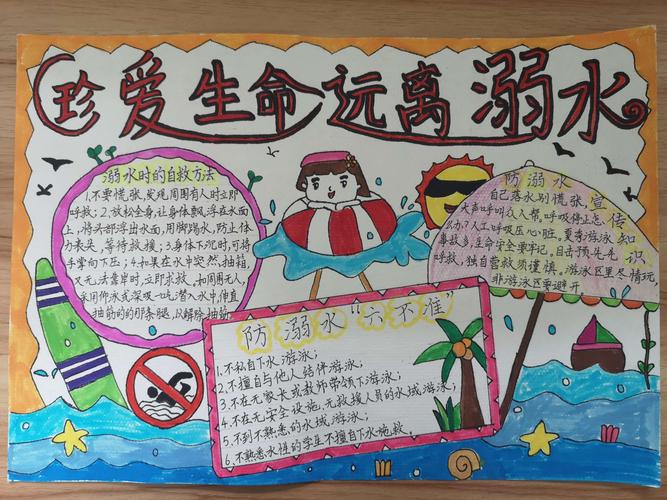 珍爱生命远离溺水
溺水时的自救方法
1.不要慌张,发现周围有人时立即
呼救;2.放松全身,让身体飘浮在水面
上,将头部浮出水面,用脚踢水,防止体
力丧失,等待救援;3.身体下沉时,可将
手掌向下压;4.如果在水中突然抽筋,
又无法靠岸时,立即求救。如周围无人,
采用仰泳或深吸一口气潜入水中,伸直
抽筋的的那条腿,从解除抽筋
防溺水宣传知识
自己落水别慌张
大声呼叫众人帮,呼吸停止怎
么办?人工呼吸压心脏。夏季游泳
事故多,生命安全要牢记。自击预
呼救,独自营救须谨慎。游泳区里尽情玩,
非游泳区要避开。
防溺水“六不准”
1.不私自下水游泳;
2.不擅自与他人结伴游泳;
3.不在无家长或教师带领下游泳;
4.不在无安全设施、无救援人员的水域游泳;
5.不到不熟悉的水域游泳;
6.不熟悉水性的学生不擅自下水施救。